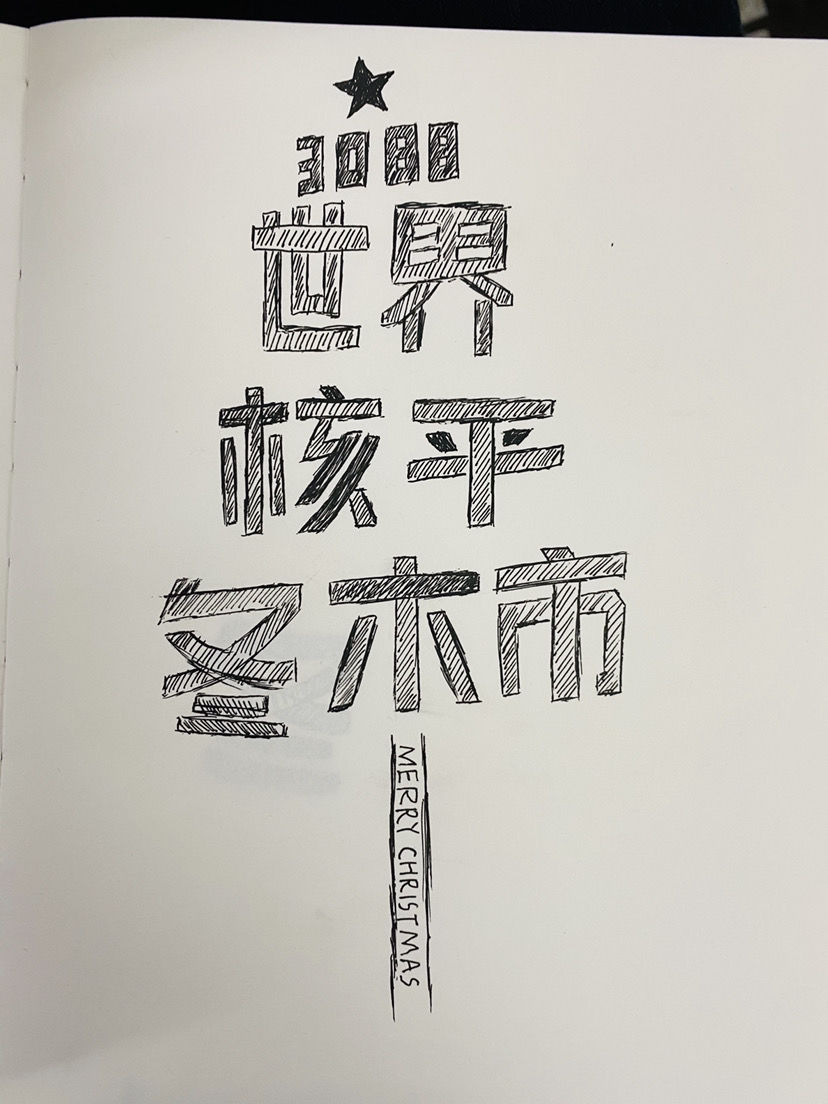 3088
世界
核平
冬木市
MERRY CHRISTMAS